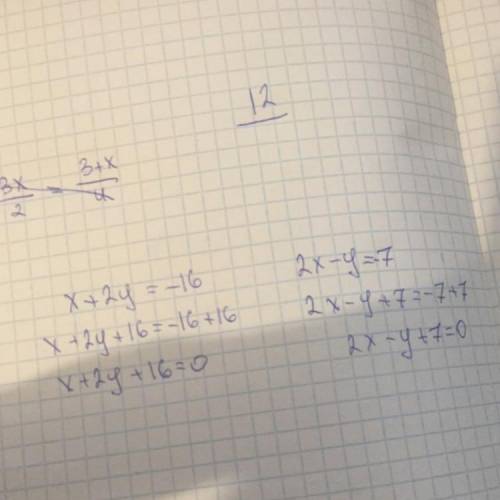 12
3x/2 = 3+x/4
x+2y = -16
x+2y+16=-16+16
x+2y+16=0
2x-y=-7
2x-y+7=-7+7
2x-y+7=0